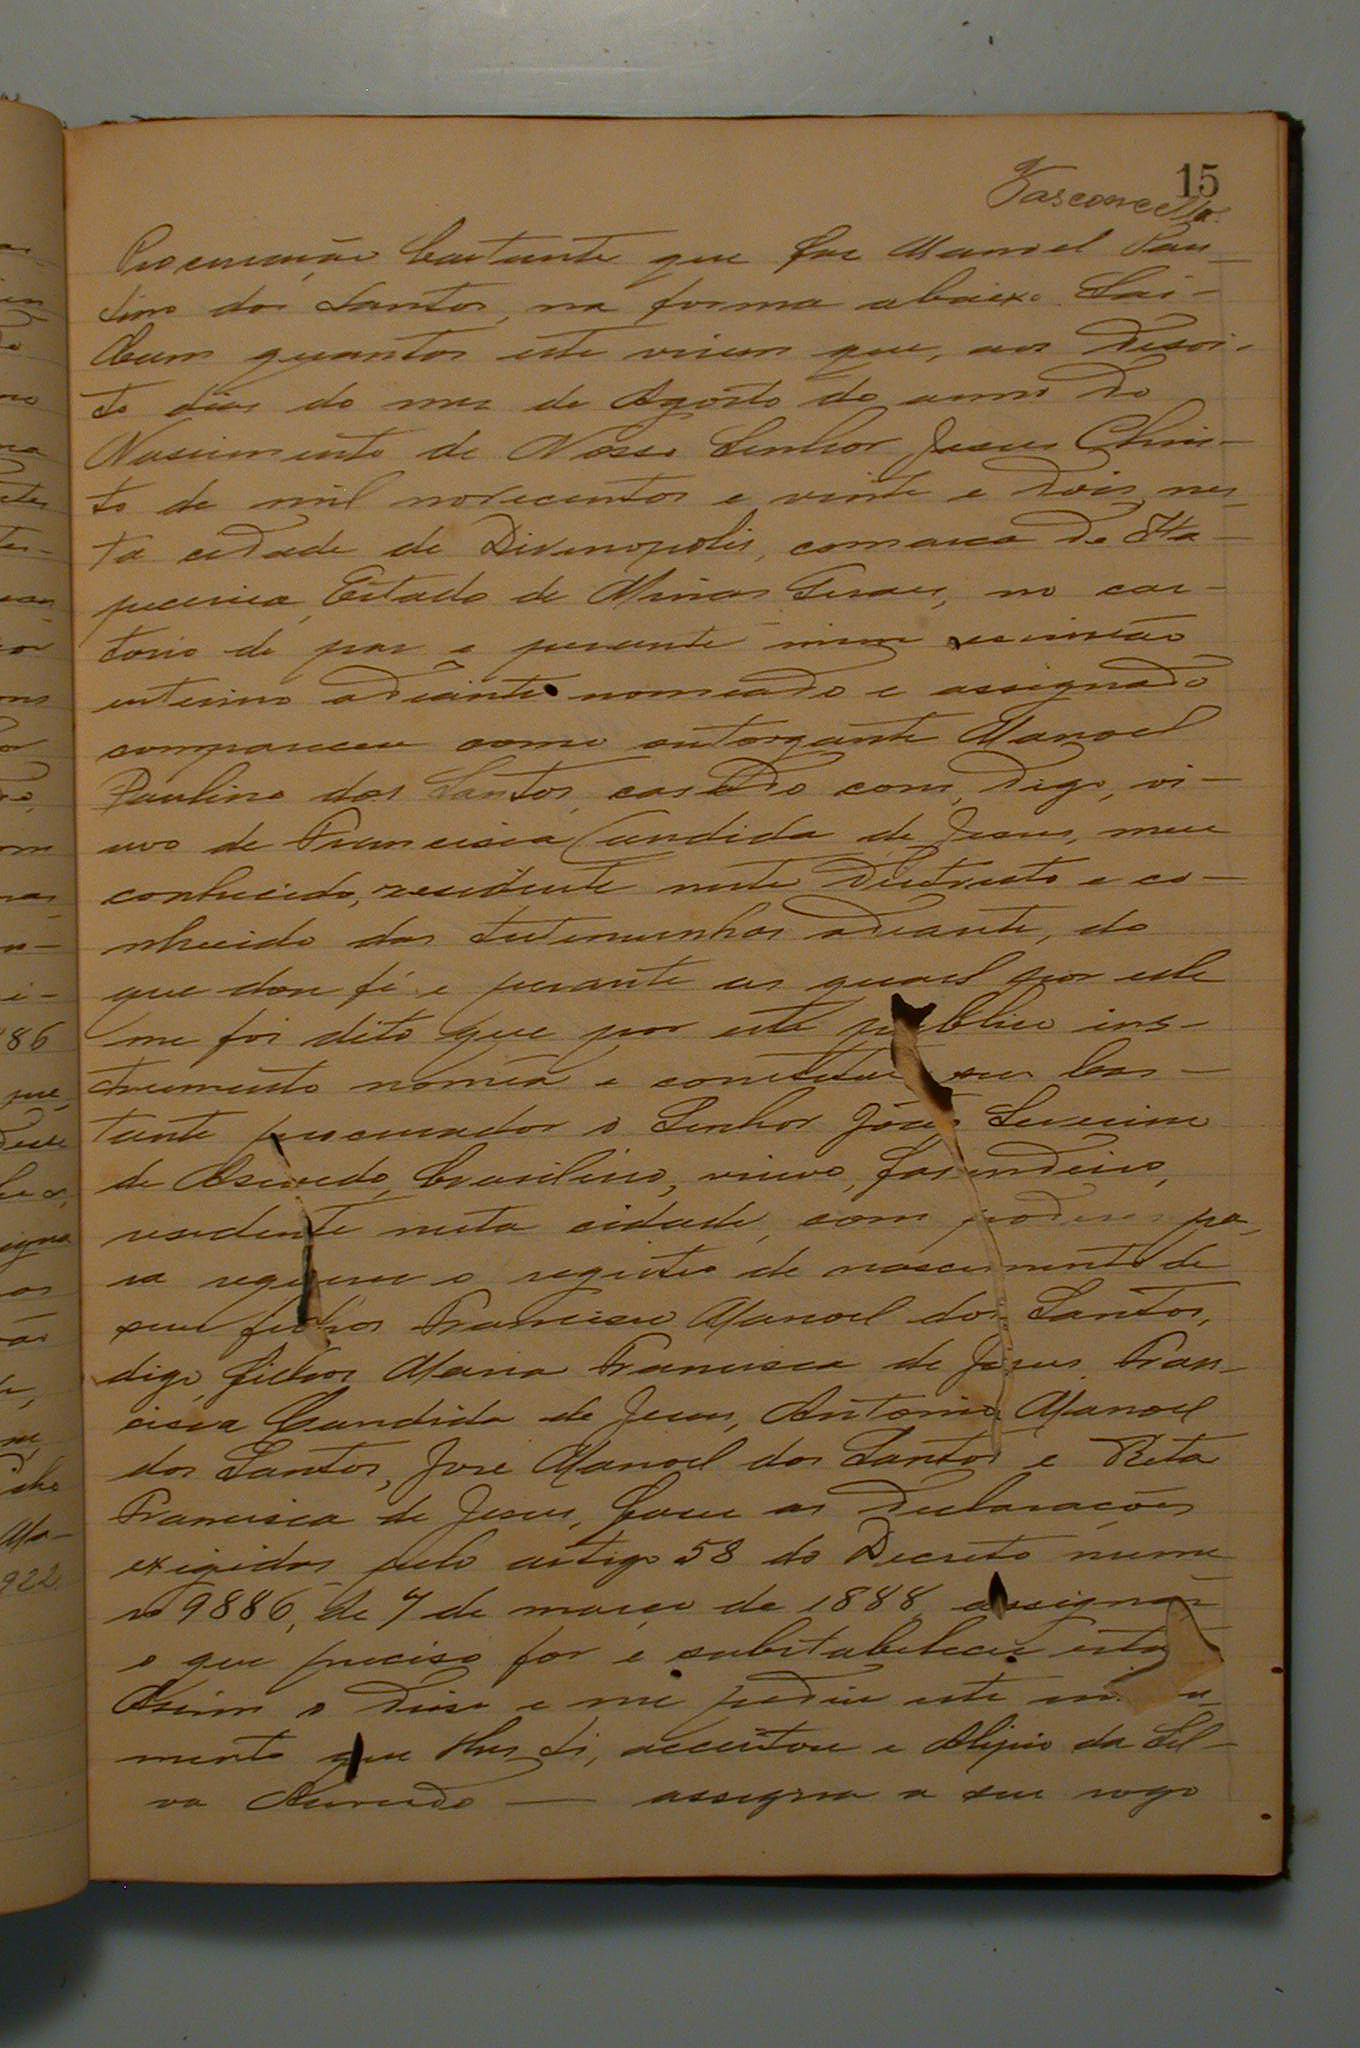 15
Vasconcellos
Procuração bastante que faz Manoel Pau-
lino dos Santos, na forma abaixo. Sai-
bam quantos este virem que, aos desoi-
to dias do mez de Agosto do anno do
Nascimento de Nosso Senhor Jesus Chris-
to de mil novecentos e vinte e dois, nes-
ta cidade de Divinopolis, comarca de Ita-
pecerica, Estado de Minas Geraes, no car-
torio de paz e perante mim escrivão
interino adiante nomeado e assignado
compareceu como outorgante Manoel
Paulino dos Santos, casado com, digo, vi-
uvo de Francisca Candida de Jesus, meu
conhecido, residente neste Districto e co-
nhecido das testemunhas adiante, do
que dou fé e perante as quaes por elle
me foi dito que por este publico ins-
trumento nomêa e constitue seu bas-
tante procurador o Senhor José Severino
de Asevedo, brasileiro, viuvo, fasendeiro,
residente nesta cidade, com poderes pa-
ra requerer o registro de nascimento de
seus filhos Francisco Manoel dos Santos,
digo, filhos Maria Francisca de Jesus, Fran-
cisca Candida de Jesus, Antonio Manoel
dos Santos, José Manoel dos Santos e Rita
Francisca de Jesus, faser as declarações
exigidas pelo artigo 58 do Decreto nume
ro 9886, de 7 de março de 1888, assignar
o que preciso for e substabelecer esta
Assim o disse e me pediu este
mento que lhes li, acceitou e Alipio da Sil-
va Asevedo — assigna a seu rogo
86
922